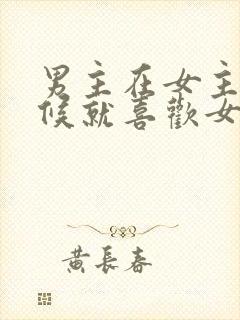 男主在女主
候就喜歡女
黃長春